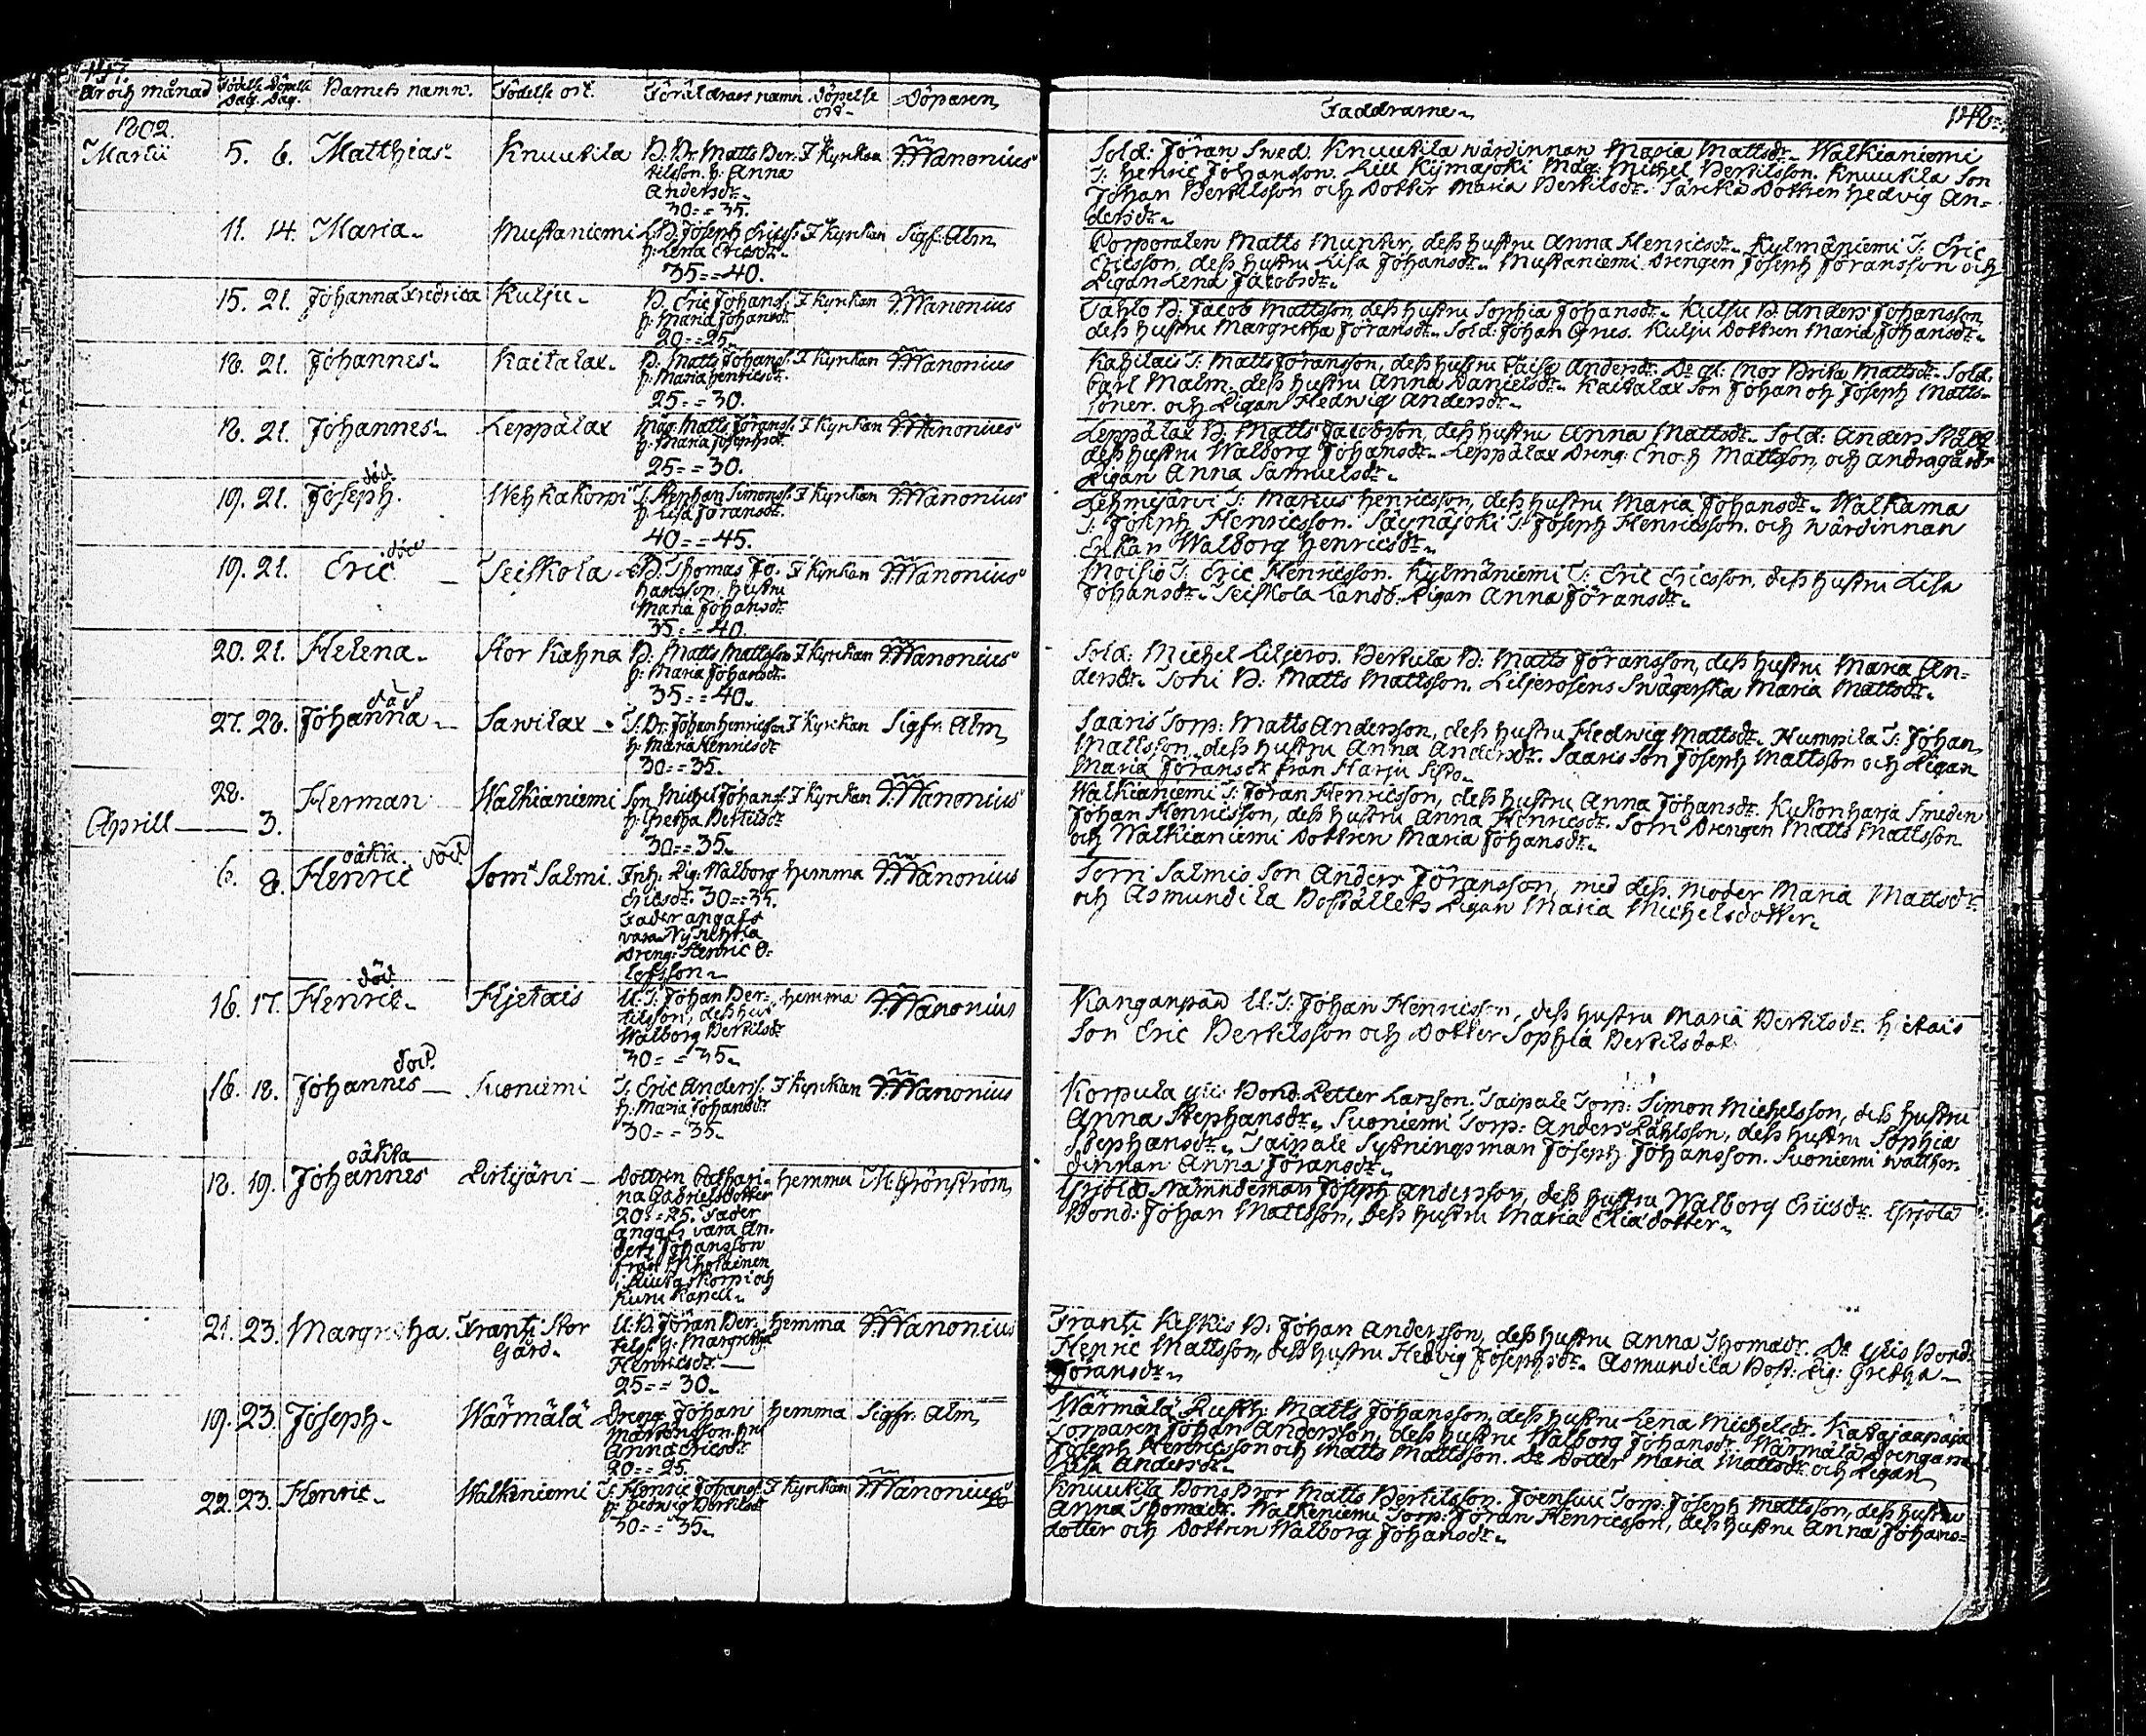 147.
År och månad Födelse Dag. Döpelse Dag. Barnets namn. Födelse ort. Föräldrars namn. Döpelse ort. Döparen
1802.
Martii 5. 6. Matthias Knuutila B: Br. Matts Ber- I Kyrkan Wanonius
tilsson. h: Anna
Andersdr
30 = = 35.
11. 14. Maria Mustaniemi Joseph Ericss. I Kyrkan Sigfr: Alm
h: Lena Ericsdr
35 = = 40.
15. 21. Johanna Fredrica Kulju B. Eric Johanss. I Kyrkan Wanonius
h: Maria Johansdr
20 = = 25.
18. 21. Johannes Kaitalax B. Matts Johanss. I Kyrkan Wanonius
h: Maria Henricsdr.
25 = = 30.
18. 21. Johannes Leppälax Måg. Matts Jöranss. I Kyrkan Wanonius
h: Maria Josephsdr.
25 = = 30.
död
19. 21. Joseph. Wehkakorpi T. Stephan Simonss. I Kyrkan Wanonius
h: Lisa Jöransdr.
40 = = 45.
död
19. 21. Eric Seiskola B. Thomas Jo- I Kyrkan Wanonius
hansson. hustru
Maria Johansdr
35 = = 40.
20. 21. Helena Stor Kahna B. Matts Mattsson I Kyrckan Wanonius
h: Maria Johansdr.
35 = = 40.
död
27. 28. Johanna Sawilax T. Br. Johan Henricsson I Kyrckan Sigfr. Alm
h: Maria Henricsdr
30 = = 35.
28. Herman Walkianiemi Michel Johanss. I Kyrckan Wanonius
Aprill 3. h: Gretha Bertilsdr
30 = = 35.
oäkta död
6. 8. Henric Torri Salmi. Inh: Pig: Walborg hemma Wanonius
Ericsdr. 30 = = 35.
Fader angafs
vara
Dreng: Henric O-
lofsson
död
16. 17. Henric Hjetais U. T. Johan Ber- hemma Wanonius
tilsson, dess hust
Walborg Bertilsdr
30 = = 35.
död
16. 18. Johannes Suoniemi T. Eric Anderss. I Kyrckan Wanonius
h: Maria Johansdr
30 = = 35.
oäkta
18. 19. Johannes Pistijärvi Dottren Cathari- hemma M. Grönström
na Gabrielsdotter
20 = = 25. Fader
angafs vara An-
ders Johansson
från
i och
Kapell
21. 23. Margretha Frantti Stor U. B. Jöran Ber- hemma Wanonius
Gård telss. h: Margretha
Henricsdr
25 = = 30.
19. 23. Joseph Wärmälä Dreng Johan hemma Sigfr. Alm
Martensson hu
Anna Ericsdr
20 = = 25.
22. 23. Henric Walkeniemi T. Henric Johanss. I Kyrckan Wanonius
h: Hedwig Bertilsdr
30 = = 35.
Faddrarne 148.
Sold: Jöran Swed. Knuutila wärdinnan Maria Mattsdr. Walkianiemi
T. Henric Johansson. Lill Kijmajoki Måg. Michel Bertilsson. Knuutila Son
Johan Bertilsson och Dotter Maria Bertilsdr. Särkiä Dottren Hedvig An-
dersdr
Corporalen Matts Munter, dess hustru Anna Henricsdr. Kylmäniemi T. Eric
Ericsson, dess hustru Lisa Johansdr. Mustaniemi Drengen Joseph Jöransson och
Pigan Lena Jacobsdr.
B. Jacob Mattsson, dess hustru Sophia Johansdr. Kulju B. Anders Johansson,
dess hustru Margretha Jöransdr. Sold: Johan Kulju Dottren Maria Johansdr.
T. Matts Jöransson, dess hustru Caisa Andersdr. Mor Brita Mattsdr. Sold:
Carl Malm. dess hustru Anna Danielsdr. Kaitalax Son Johan och Joseph Matts-
söner. och Pigan Hedwig Andersdr.
Leppälax B. Matts Jacobsson, dess hustru Anna Mattsdr. Sold: Anders Stål
dess hustru Walborg Johansdr. Leppälax Dreng. Enoch Mattsson, och andragårds
Pigan Anna Samuelsdr.
Lehmejärvi T. Marcus Henricsson, dess hustru Maria Johansdr. Walkama
T. Joseph Henricsson. Säynäjoki T. Joseph Henricsson och wärdinnan
Enkan Walborg Henricsdr.
Moisio T. Eric Henricsson. Kylmäniemi T. Eric Ericsson, dess hustru Lisa
Johansdr. Seiskola Landb: Pigan Anna Jöransdr.
Sold: Michel Liljeros. Pertula B. Matts Jöransson, dess hustru Maria An-
dersdr. Tohi B. Matts Mattsson. Liljerosens Swägerska Maria Mattsdr.
Saaris Torp: Matts Andersson, dess hustru Hedwig Mattsdr. Numnila T. Johan
Mattsson, dess hustru Anna Andersdr. Saaris Son Joseph Mattsson och Pigan
Maria Jöransdr från Harju
Walkianiemi T. Jöran Henricsson, dess hustru Anna Johansdr. Kukonharja Smeden
Johan Henricsson, dess hustru Anna Henricsdr. Torri Drengen Matts Mattsson
och Walkianiemi Dottren Maria Johansdr.
Torri Salmis Son Anders Jöransson, med dess moder Maria Mattsdr
och Asmundila Boställets Pigan Maria Michelsdotter
Kanganpää U. T. Johan Henricsson, dess hustru Maria Bertilsdr. Hietais
Son Eric Bertelsson och Dotter Sophia Bertilsdot
Korpula Bond. Petter Larsson. Taipale Torp: Simon Michelsson, dess hustru
Anna Stephansdr. Suoniemi Torp: Anders Påhlsson, dess hustru Sophia
Stephansdr. Taipale Sytningsman Joseph Johansson. Suoniemi
dinnan Anna Jöransdr.
Yrjölä Nämndeman Joseph Andersson, dess hustru Walborg Ericsdr. Yrjölä
Bond: Johan Mattsson, dess hustru Maria Eliædotter
Frantti Keskis B. Johan Andersson, dess hustru Anna Thomædr. Do Ylis Bond:
Henric Mattsson, dess hustru Hedvig Josephsdr. Asmundila Bost: Pig: Gretha
Jöransdr.
Wärmälä Rusth: Matts Johansson, dess hustru Lena Michelsdr. Katajaapaja
Torparen Johan Andersson, dess hustru Walborg Johansdr. Wärmälä Drengarne
Joseph Henricsson och Matts Mattsson. Do Dotter Maria Mattsdr och Pigan
Lisa Andersdr
Knuutila Bond Bror Matts Bertilsson. Joensuu Torp: Joseph Mattsson, dess hustru
Anna Thomædr. Walkeniemi Torp: Jöran Henricsson, dess hustru Anna Johans-
dotter och Dottren Walborg Johansdr.